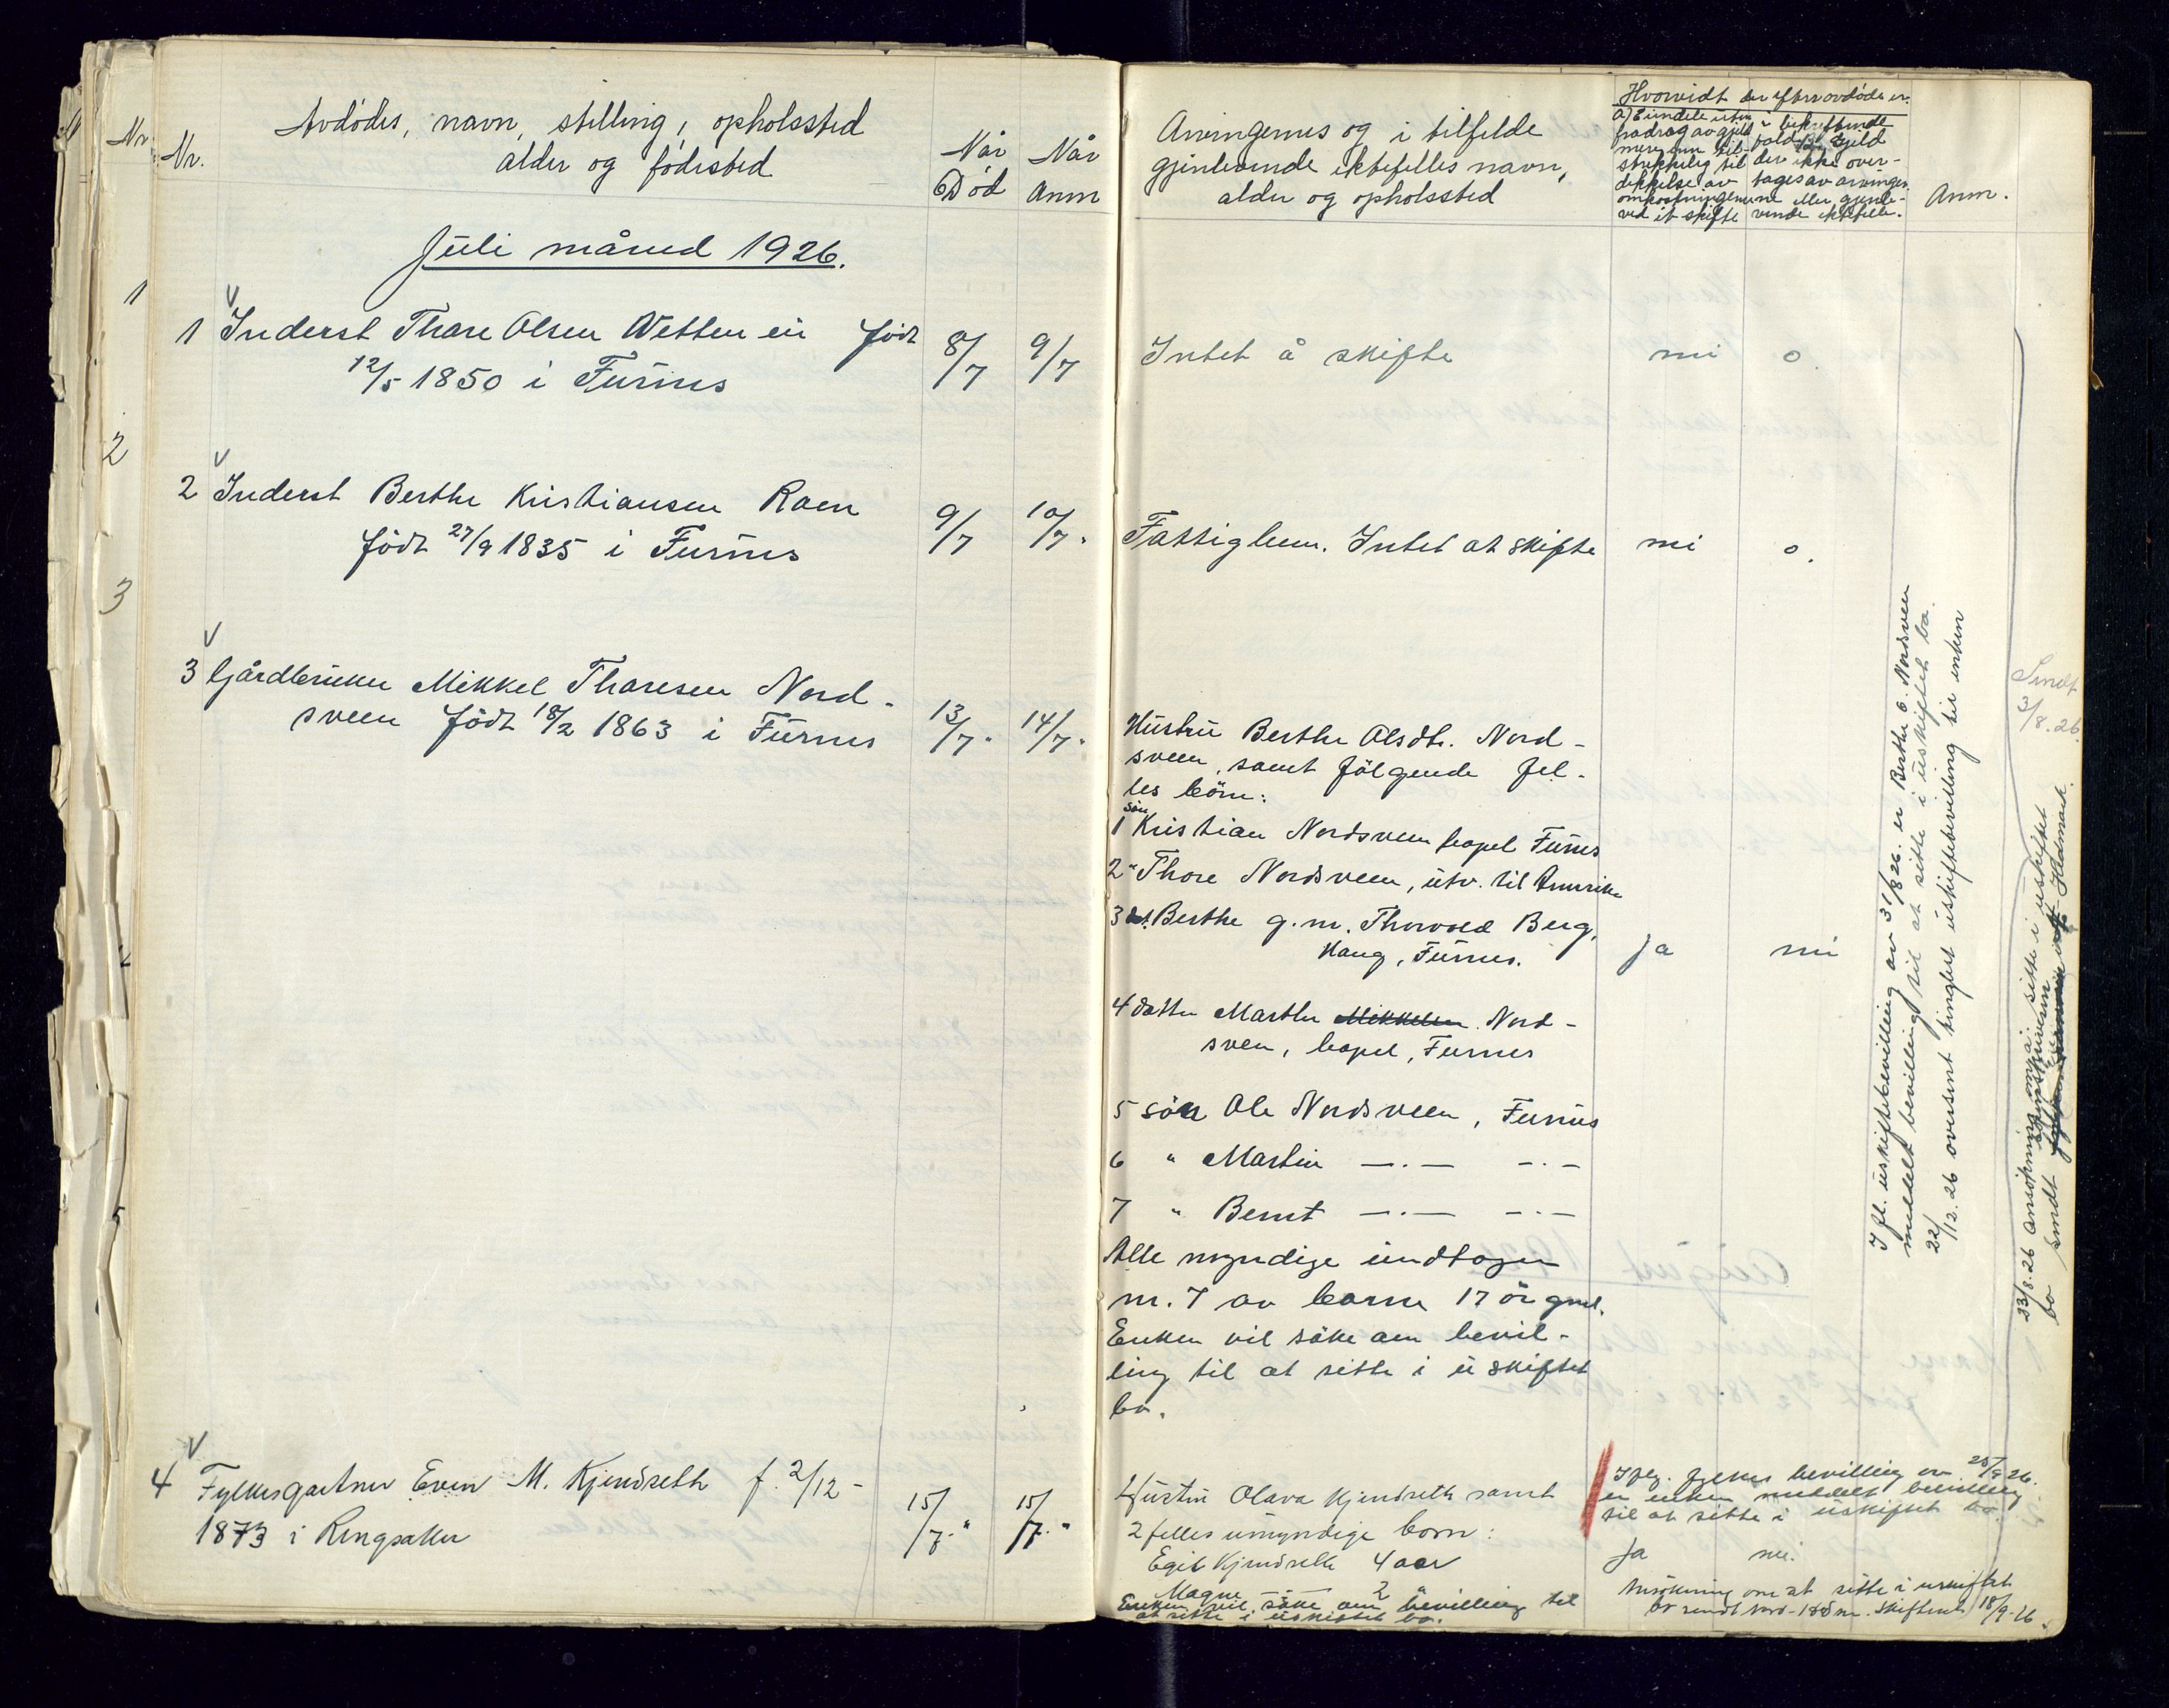 Nr.
Nr.
Avdødes, navn, stilling, opholssted
alder og fødested
Når
Død
Når
Anm
Juli måned 1926.
1
1 Inderst Thore Olsen Wetten ei født 8/7 9/7
12/5 1850 i Furnes
2
2 Inderst Berthe Kristiansen Roen 9/7 10/7.
født 27/9 1835 i Furnes
3
3 Gårdbruker Mikkel Thoresen Nord-
sveen født 18/2 1863 i Furnes 13/7. 14/7.
4 Fylkesgartner Even M. Kjendseth f. 2/12- 15/7." 15/7."
1873 i Ringsaker
Arvingernes og i tilfelde
gjenlevende ektefelles navn,
alder og opholssted
Hvorvidt der efter avdøde er:
a) Eiendele uten
fradrag av gjeld
mere enn til-
strekkelig til
dekkelse av
omkostningene
ved et skifte
i bekreftende
fald til gjeld
der ikke over-
tages av arvinger-
ne eller gjenle-
vende ektefelle.
Anm.
Intet å skifte nei o.
Fattiglem. Intet at skifte nei o.
Hustru Berthe Olsdtr. Nord-
sveen, samt følgende fel-
les børn:
søn
1 Kristian Nordsveen bopel Furnes
2 " Thore Nordsveen, utv. til Amerika
3 dt. Berthe g.m. Thorvald Berg,
Haug, Furnes. ja nei
4 datter Marthe Mikkelsen Nord-
sveen, bopel, Furnes
5 søn Ole Nordsveen, Furnes
6 " Martin —.— —.—
7 " Bernt —.— —.—
Alle myndige undtagen
nr. 7 av barna 17 år gml.
Enken vil søke om bevil-
ling til at sitte i uskiftet
bo.
I fl. uskiftebevilling av 31/8 26. er Berthe O. Nordsveen
meddelt bevilling til at sitte i uskiftet bo.
22/12. 26 oversent tinglest uskiftebevilling til enken
Sendt
3/8. 26.
23/8. 26 ansøkning om å sitte i uskiftet
bo sendt sorenskriveren
Hedmark.
Hustru Olava Kjendseth samt
2 felles umyndige børn:
Egil Kjendseth 4 aar
Magne 2 "
Enken vil søke om bevilling til
at sitte i uskiftet bo.
Iflg. fylkes bevilling av 25/9 26.
er enken meddelt bevilling
til at sitte i uskiftet bo.
Ja nei.
Ansøkning om at sitte i uskiftet
bo sendt Nord-Hedm. skifteret 18/9-26.